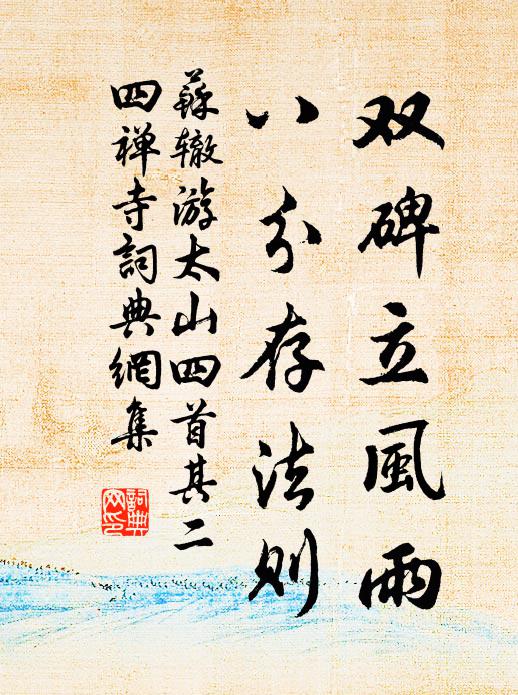 双碑立風雨
八分存法则
蘇辙游太山四首其二
四禅寺詞典網集
詞典網印